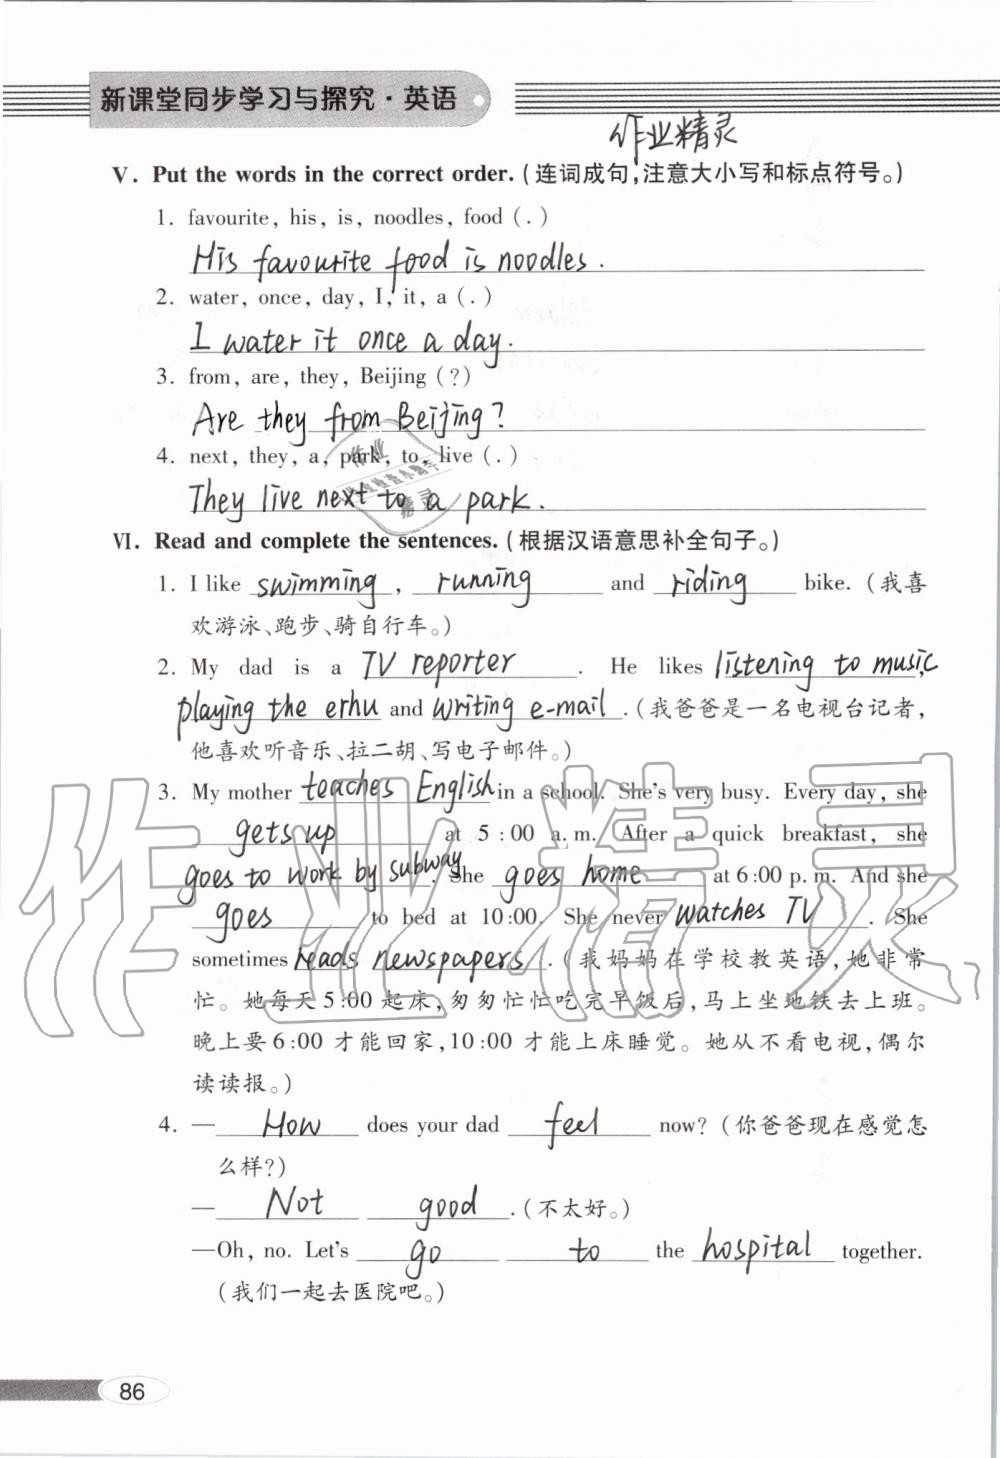 新课堂同步学习与探究·英语
作业精灵
Ⅴ. Put the words in the correct order.(连词成句,注意大小写和标点符号。)
1. favourite, his, is, noodles, food (.)
His favourite food is noodles.
2. water, once, day, I, it, a (.)
I water it once a day.
3. from, are, they, Beijing (?)
Are they from Beijing?
4. next, they, a, park, to, live (.)
They live next to a park.
Ⅵ. Read and complete the sentences.(根据汉语意思补全句子。)
1. I like swimming, running and riding bike.(我喜
欢游泳、跑步、骑自行车。)
2. My dad is a TV reporter. He likes listening to music,
playing the erhu and writing e-mail.(我爸爸是一名电视台记者,
他喜欢听音乐、拉二胡、写电子邮件。)
3. My mother teaches English in a school. She's very busy. Every day, she
gets up at 5:00 a.m. After a quick breakfast, she
goes to work by subway. She goes home at 6:00 p.m. And she
goes to bed at 10:00. She never watches TV. She
sometimes reads newspapers.(我妈妈在学校教英语,她非常
忙。她每天5:00起床,匆匆忙忙吃完早饭后,马上坐地铁去上班。
晚上要6:00才能回家,10:00才能上床睡觉。她从不看电视,偶尔
读读报。)
4. —How does your dad feel now?(你爸爸现在感觉怎
么样?)
—Not good.(不太好。)
—Oh, no. Let's go to the hospital together.
(我们一起去医院吧。)
86
作业精灵